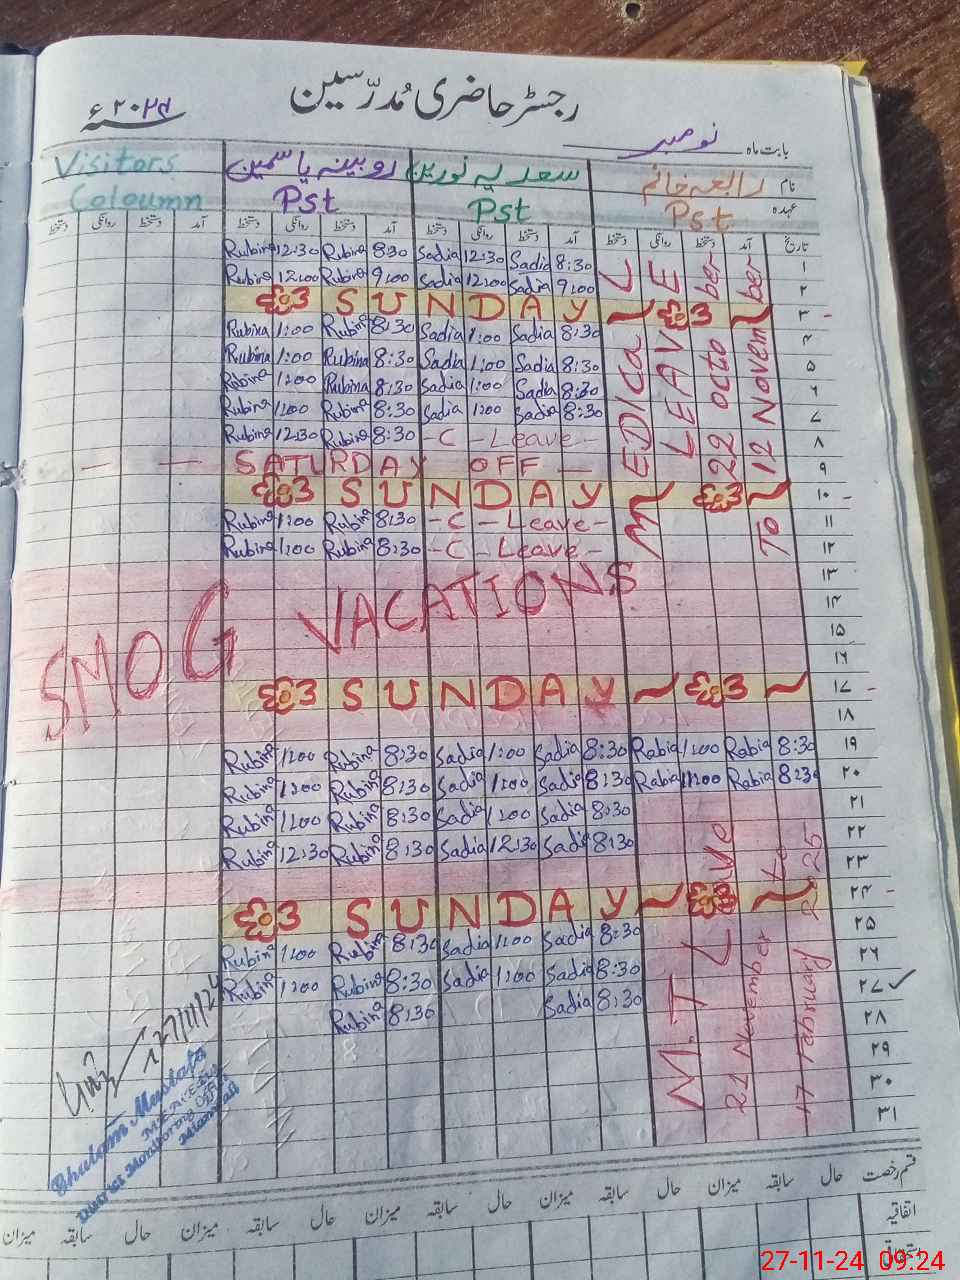 رجسٹر حاضری مُدرّسین
۲۰۲۴ء
بابت ماہ نومبر
نام رابعہ خانم سعدیہ نورین روبینہ یاسمین Visitors
عہدہ Pst Pst Pst Coloumn
تاریخ آمد دستخط روانگی دستخط آمد دستخط روانگی دستخط آمد دستخط روانگی دستخط آمد دستخط روانگی دستخط
Rubina 12:30 Rubina 8:30 Sadia 12:30 Sadia 8:30 ۱
Rubina 12:00 Rubina 9:00 Sadia 12:00 Sadia 9:00 ۲
SUNDAY ۳
Rubina 1:00 Rubina 8:30 Sadia 1:00 Sadia 8:30 ۴
Rubina 1:00 Rubina 8:30 Sadia 1:00 Sadia 8:30 ۵
Rubina 1:00 Rubina 8:30 Sadia 1:00 Sadia 8:30 ۶
Rubina 1:00 Rubina 8:30 Sadia 1:00 Sadia 8:30 ۷
Rubina 12:30 Rubina 8:30 - C - Leave - ۸
— — SATURDAY OFF — ۹
SUNDAY ۱۰
Rubina 1:00 Rubina 8:30 - C - Leave - ۱۱
Rubina 1:00 Rubina 8:30 - C - Leave - ۱۲
MEDICaL
LEAVE
22 october
To 12 November
۱۳
SMOG VACATIONS ۱۴
۱۵
۱۶
SUNDAY ۱۷
۱۸
Rubina 1:00 Rubina 8:30 Sadia 1:00 Sadia 8:30 Rabia 1:00 Rabia 8:30 ۱۹
Rubina 1:00 Rubina 8:30 Sadia 1:00 Sadia 8:30 Rabia 1:00 Rabia 8:30 ۲۰
Rubina 1:00 Rubina 8:30 Sadia 1:00 Sadia 8:30 ۲۱
Rubina 12:30 Rubina 8:30 Sadia 12:30 Sadia 8:30 ۲۲
۲۳
SUNDAY ۲۴
Rubina 1:00 Rubina 8:30 Sadia 1:00 Sadia 8:30 ۲۵
Rubina 1:00 Rubina 8:30 Sadia 1:00 Sadia 8:30 ۲۶
Rubina 8:30 Sadia 8:30 ۲۷
۲۸
۲۹
۳۰
۳۱
M.T Leave
21 November to
17 February 2025
27/11/24
Ghulam Mustafa
District Monitoring Officer
Mianwali
قسم رخصت حال سابقہ میزان حال سابقہ میزان حال سابقہ میزان حال سابقہ میزان حال سابقہ میزان
اتفاقیہ
استحقاقی
27-11-24 09:24